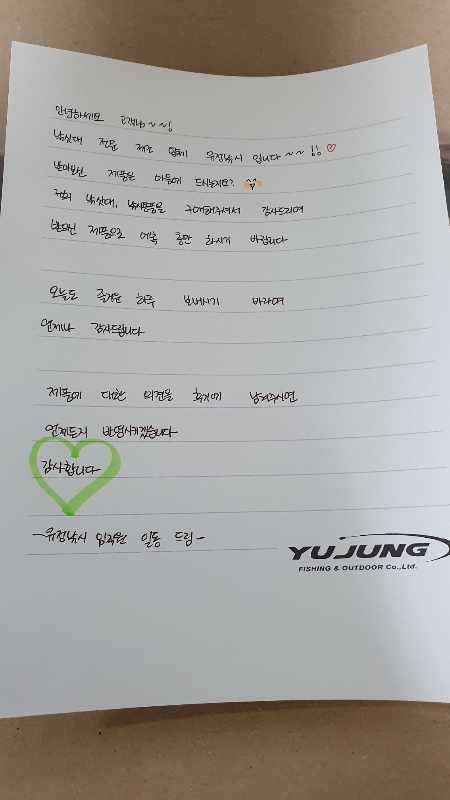 안녕하세요 고객님~~!
낚싯대 전문 제조 업체 유정낚시 입니다~~!!♡
받아보신 제품은 마음에 드시는지요? ^^
저희 낚싯대, 낚시용품을 구매해주셔서 감사드리며
받으신 제품으로 어복 충만 하시기 바랍니다
오늘도 즐거운 하루 보내시기 바라며
언제나 감사드립니다
제품에 대한 의견을 후기에 남겨주시면
언제든지 반영시키겠습니다
감사합니다
-유정낚시 임직원 일동 드림-
YUJUNG
FISHING & OUTDOOR Co.,Ltd.